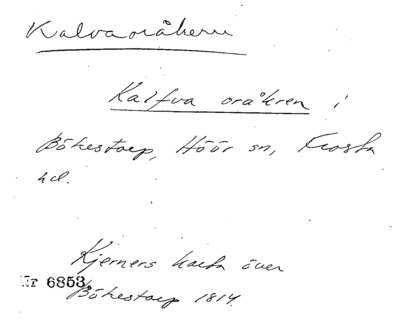 Kalvaoråkern
Kalfva oråkren i
Bökestorp, Höör sn, Frosta
hd.
Kjerners karta över
Nr 6853.
Bökestorp 1814.